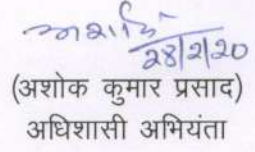 28/2/20
(अशोक कुमार प्रसाद)
अधिशासी अभियंता